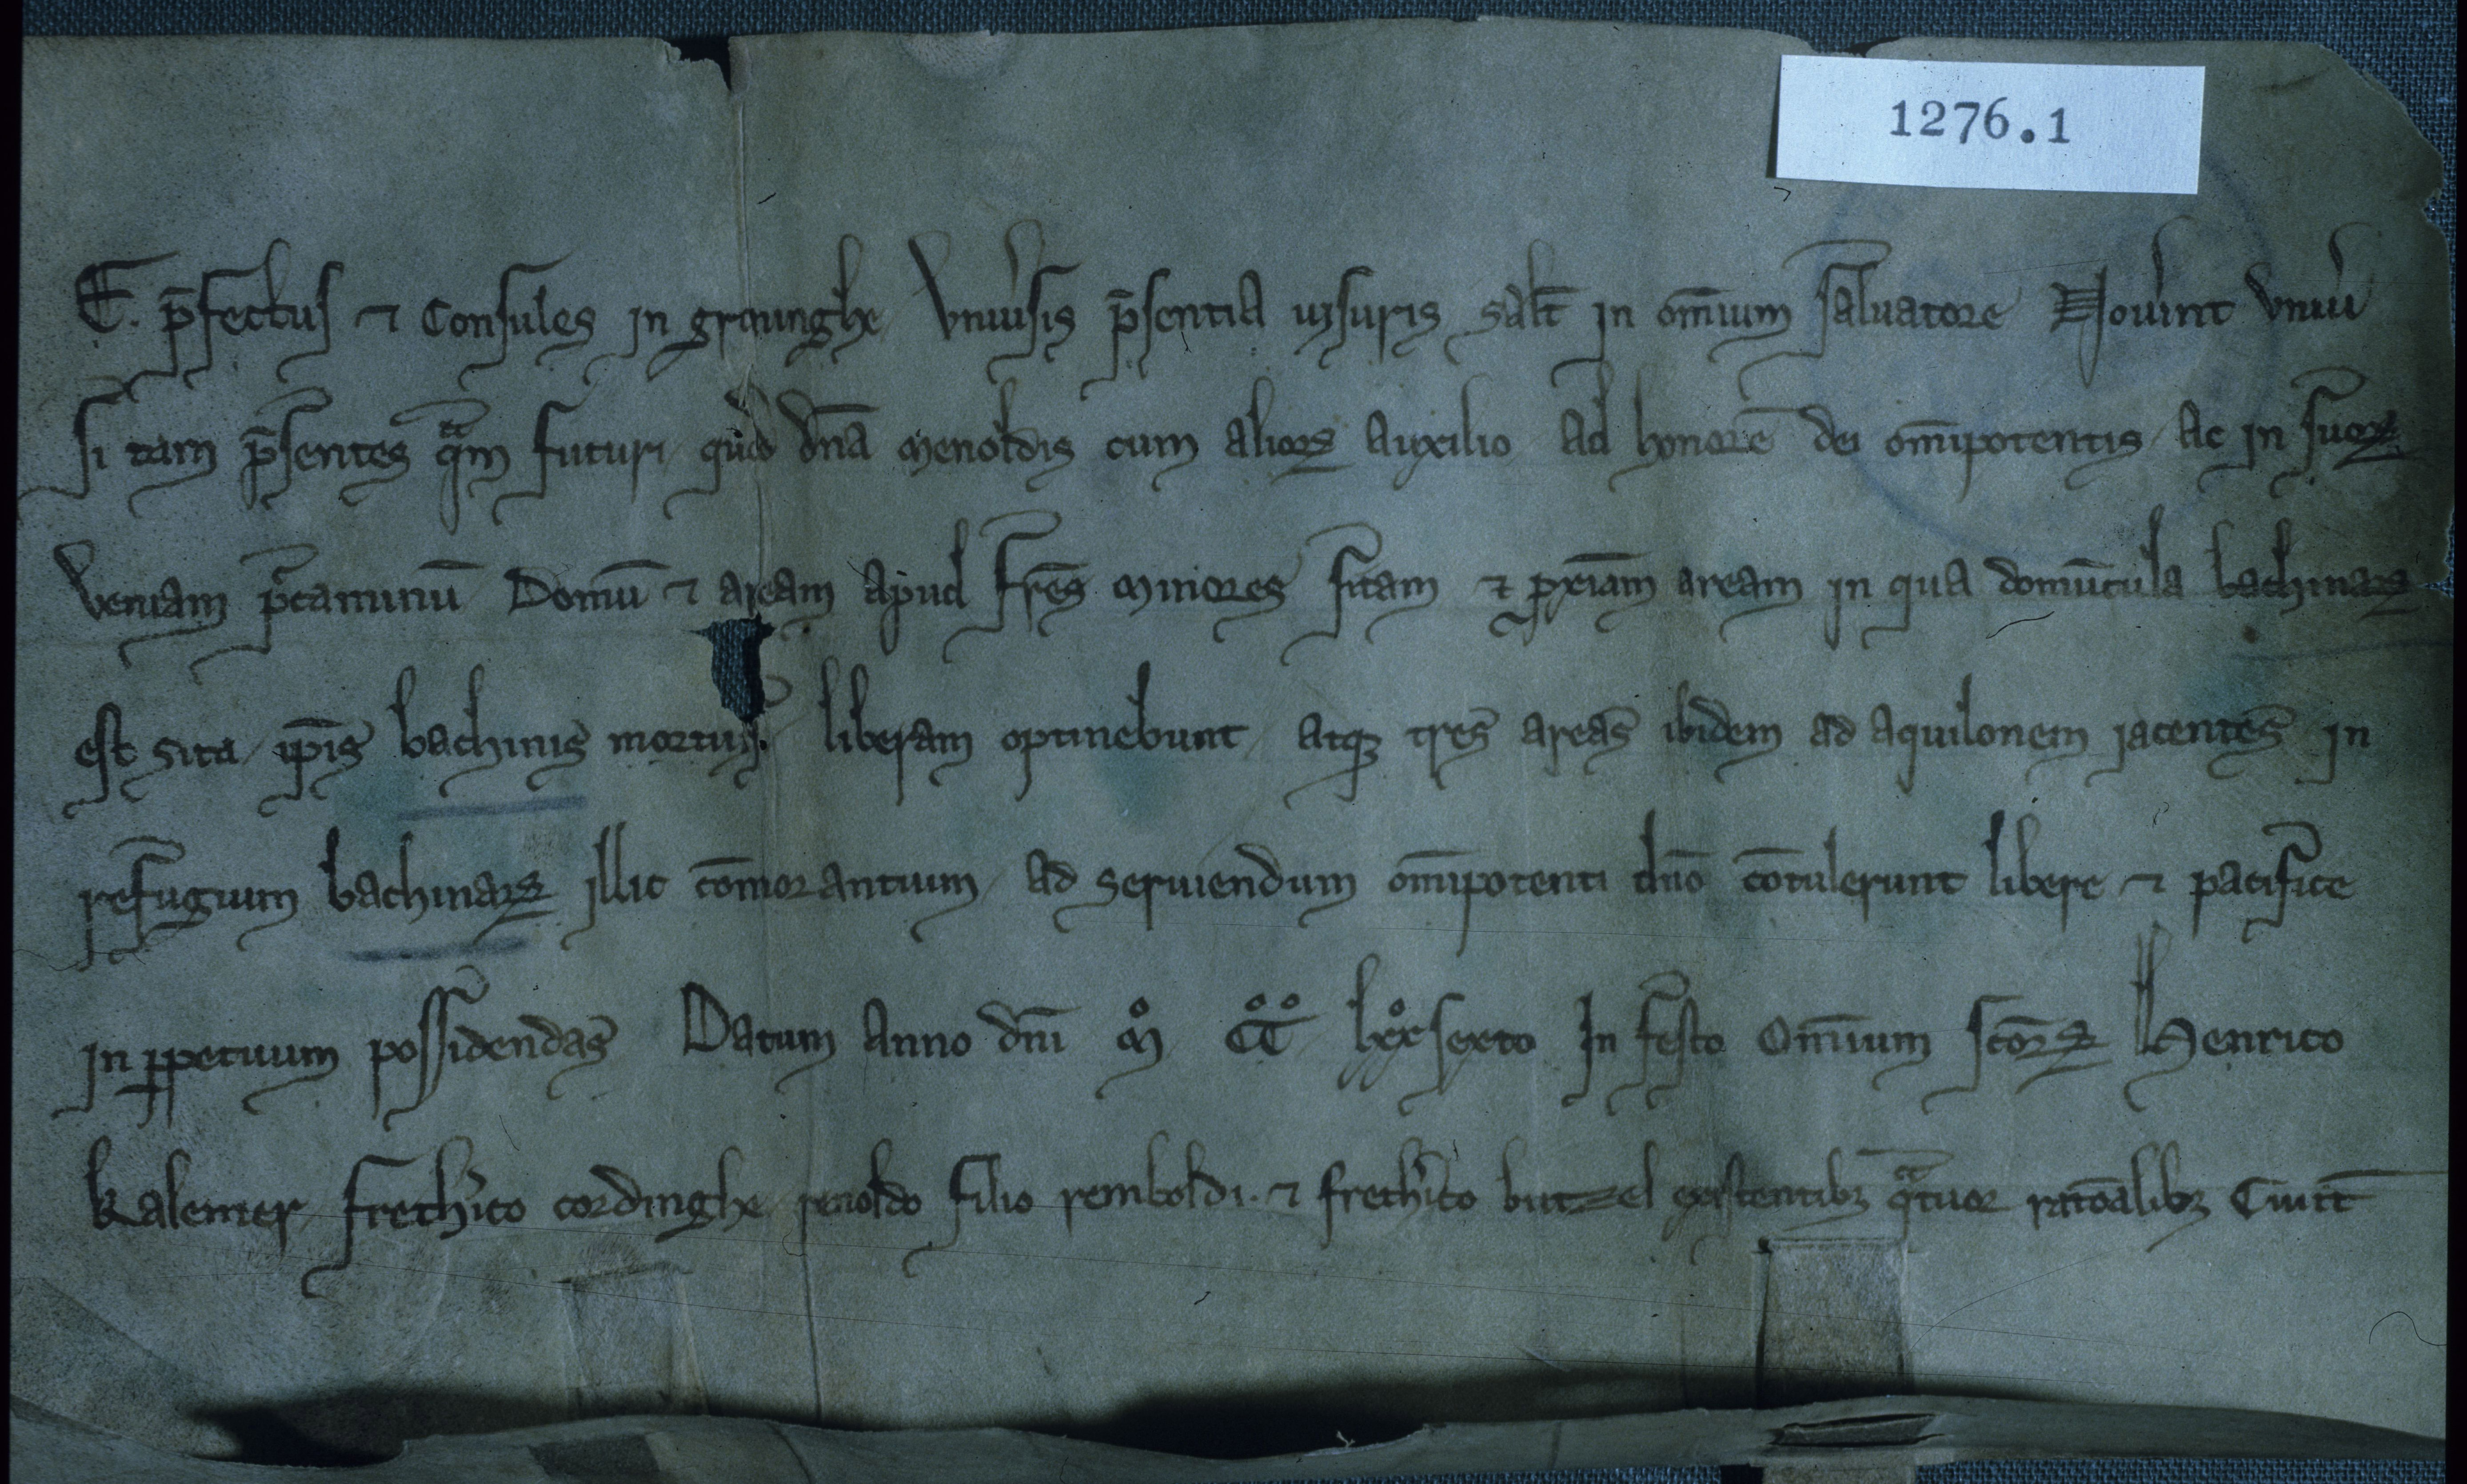 1276.1
E. p̄fectus ⁊ Consules in groninghe Vniu'sis p̄sentia uisuris salt̄ in om̄ium saluatore Nouint vniu'
si tam p̄sentes qᵃm futuri qd' dn̄a menoldis cum alioꝝ auxilio Ad honorē dei om̄ipotentis Ac in suoꝝ
veniam p̄caminū Domū ⁊ aream apud fr̄es minores sitam ⁊ ꝓxīam aream in qua domūcula bachinaꝝ
est sita ip̄is bachinis mortuis liberam optinebunt atqꝫ tres areas ibidem ad aquilonem iacentes in
refugium bachinaꝝ illic cōmorantium ad seruiendum om̄ipotenti dn̄o cōtulerunt libere ⁊ pacifice
in ꝑpetuum possidendas Datum Anno dn̄i m̊ c̊c̊ lxx̊ sexto In festo Om̄ium sc̄oꝝ Henrico
kalemer frethⁱco cordinghe renoldo filio remboldi. ⁊ frethⁱco butzel existentibꝫ qᵃtuor ratōalibꝫ Ciuit̄